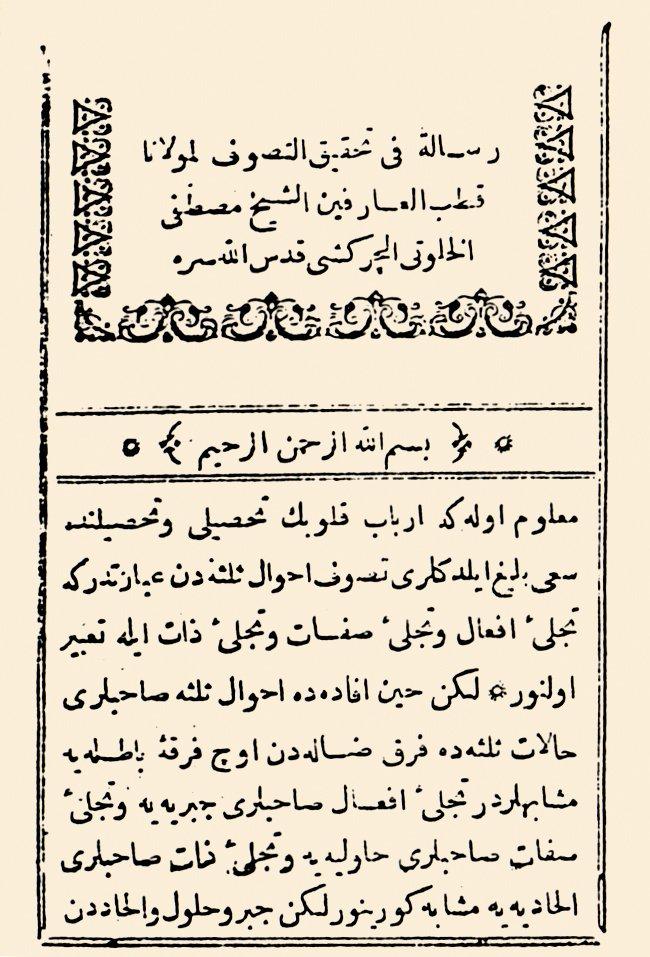 رسالة فى تحقيق التصوف لمولانا
قطب العارفين الشيخ مصطفى
الخلوتى الچركشى قدس الله سره
﴿ بسم الله الرحمن الرحيم ﴾
معلوم اوله كه ارباب قلوبك تحصيلى وتحصيلنده
سعى بليغ ايلدكلرى تصوف احوال ثلثه دن عبارتدركه
تجلئ افعال وتجلئ صفات وتجلئ ذات ايله تعبير
اولنور * لكن حين افاده ده احوال ثلثه صاحبلرى
حالات ثلثه ده فرق ضاله دن اوچ فرقهٔ باطله يه
مشابهلردر تجلئ افعال صاحبلرى جبريه يه وتجلئ
صفات صاحبلرى حلوليه يه وتجلئ ذات صاحبلرى
الحاديه يه مشابه كورينور لكن جبر وحلول والحاددن